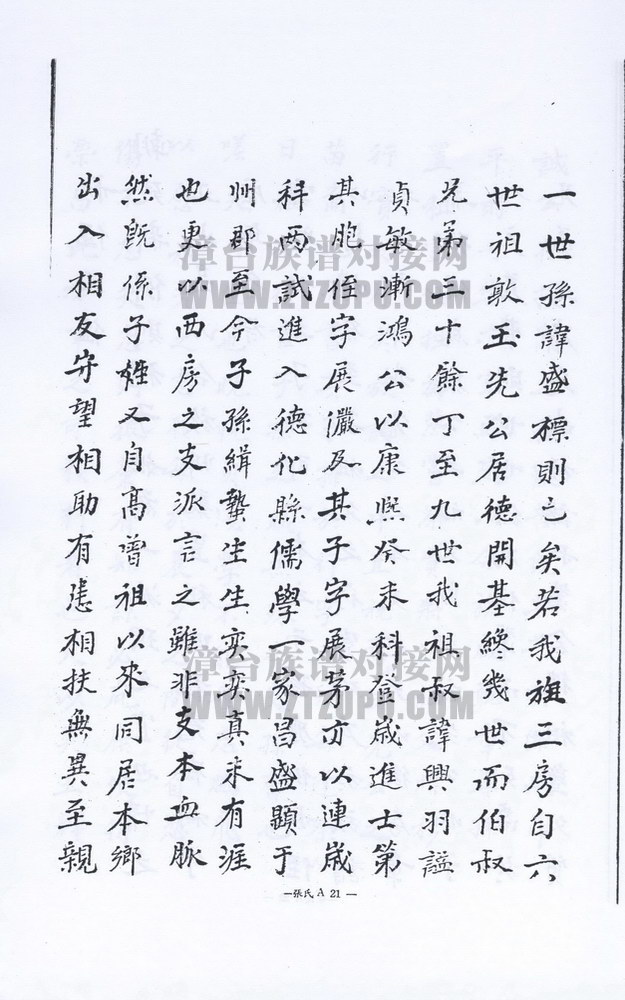 一世孫諱盛標則已矣若我族三房自六
世祖敦玉先公居德開基終幾世而伯叔
兄弟三十餘丁至九世我祖叔諱興羽諡
貞敏漸鴻公以康熙癸未科登歲進士第
其胞侄字展瀛及其子字展茅亦以連歲
科两試進入德化縣儒學一家昌盛顕于
州郡至今子孫緝蟄生生奕奕真未有涯
也更以西房之支派言之雖非支本血脈
然既係子姓又自高曾祖以來同居本鄉
出入相友守望相助有患相扶無異至親
—張氏 A 21 —
漳台族谱对接网
WWW.ZTZUPU.COM
漳台族谱对接网
WWW.ZTZUPU.COM